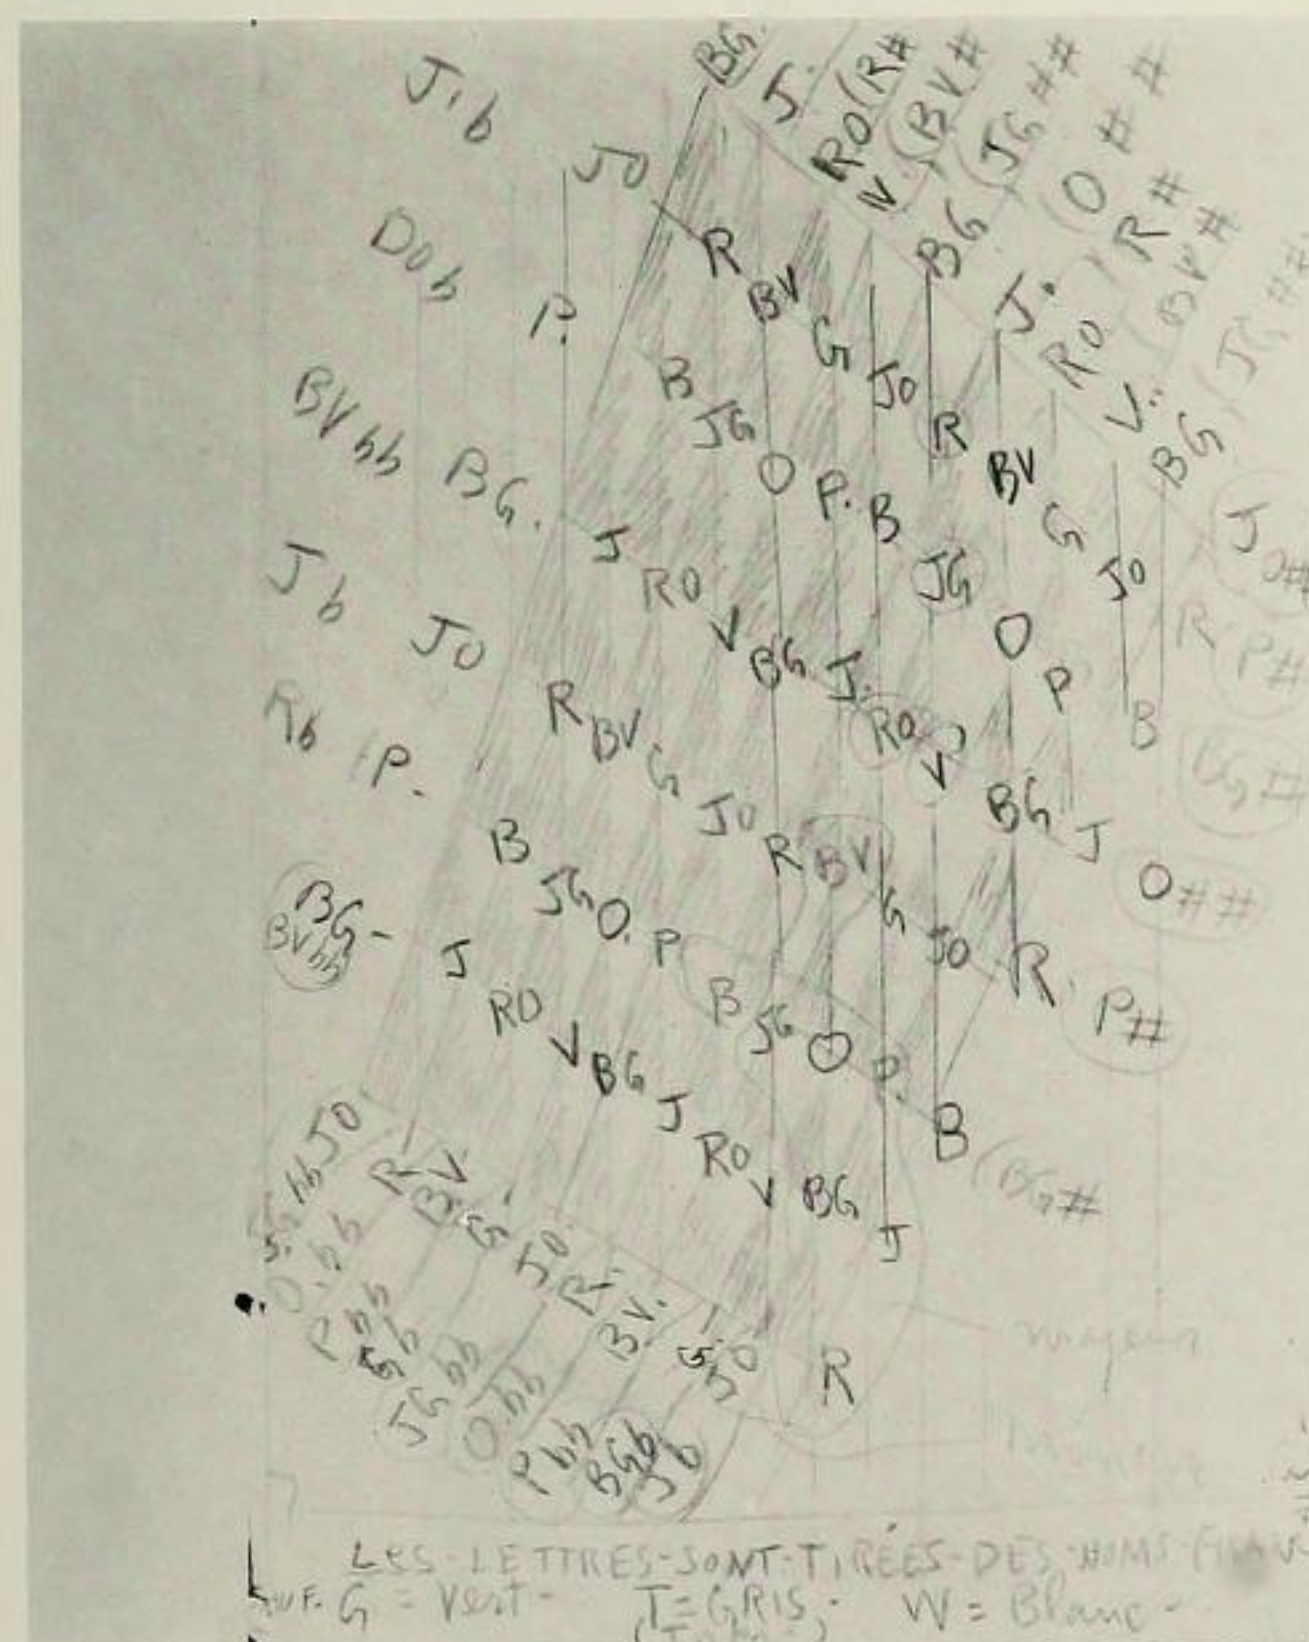 BG. J. RO (R# V. (BV# BG (JG## J. (O## RO R# V.. (BV# BG (JG##
J.b JO R BV G JO R BV G JO
Dob P. B JG O P. B JG O P B
BVbb BG. J RO V BG J. RO V BG J O##
Jb JO R BV G JO R BV G JO R. P#
Rb P. B JG O. P B JG O P. B (BG#
BG- J RO V BG J RO V BG J
BVbb
JO R BV. G JO. R. BV. G. JO R
O.bb Pbb JG bb O.bb Pbb BGb Jb
J O#
R P#
BG#
majeur
LES-LETTRES-SONT-TIRÉES-DES-NOMS
G = Vert- T=GRIS. W = Blanc-